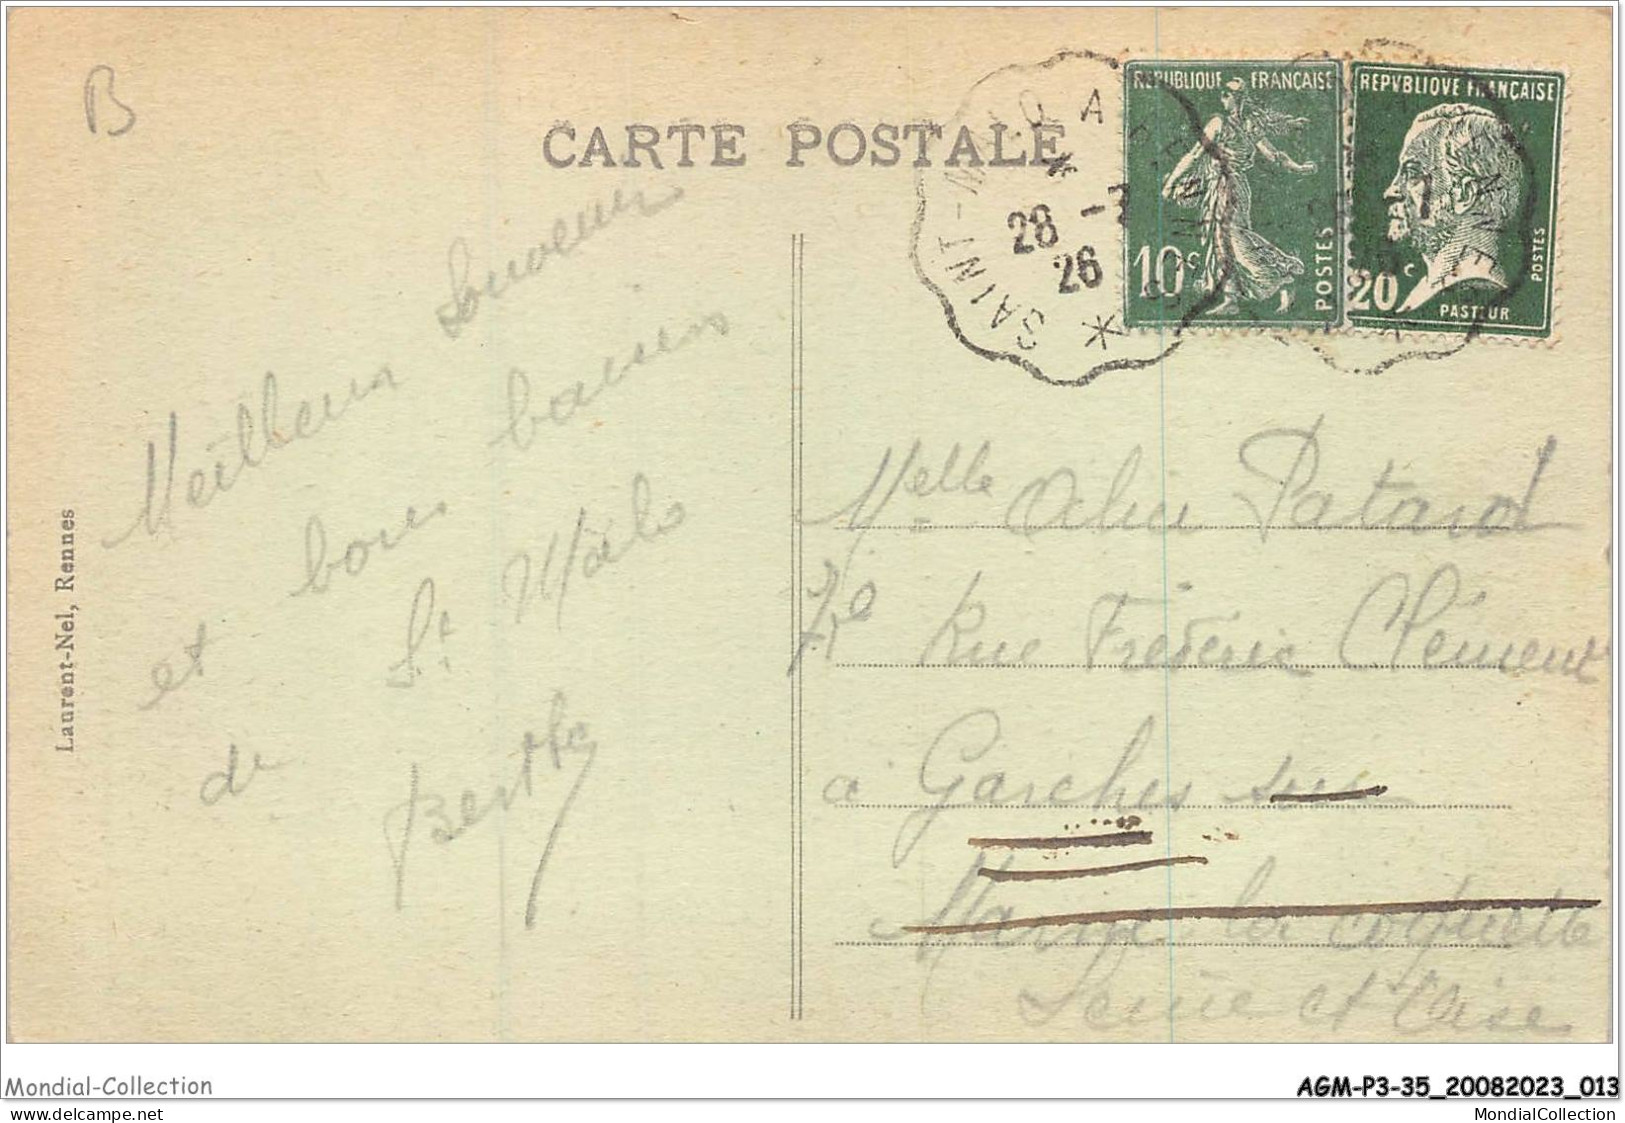 B
CARTE POSTALE
SAINT-MALO A RENNES
28 -7
26
REPUBLIQUE FRANÇAISE
10c
POSTES
REPVBLIQVE FRANÇAISE
20c
POSTES
PASTEUR
Meilleur Souvenir
et bons baisers
de St Malo
Berthe
Laurent-Nel, Rennes
Melle Alice Patard
Rue Frédéric Clément
a Garches sur
Marne la coquette
Seine et Oise
Mondial-Collection
AGM-P3-35_20082023_013
delcampe.net
MondialCollection